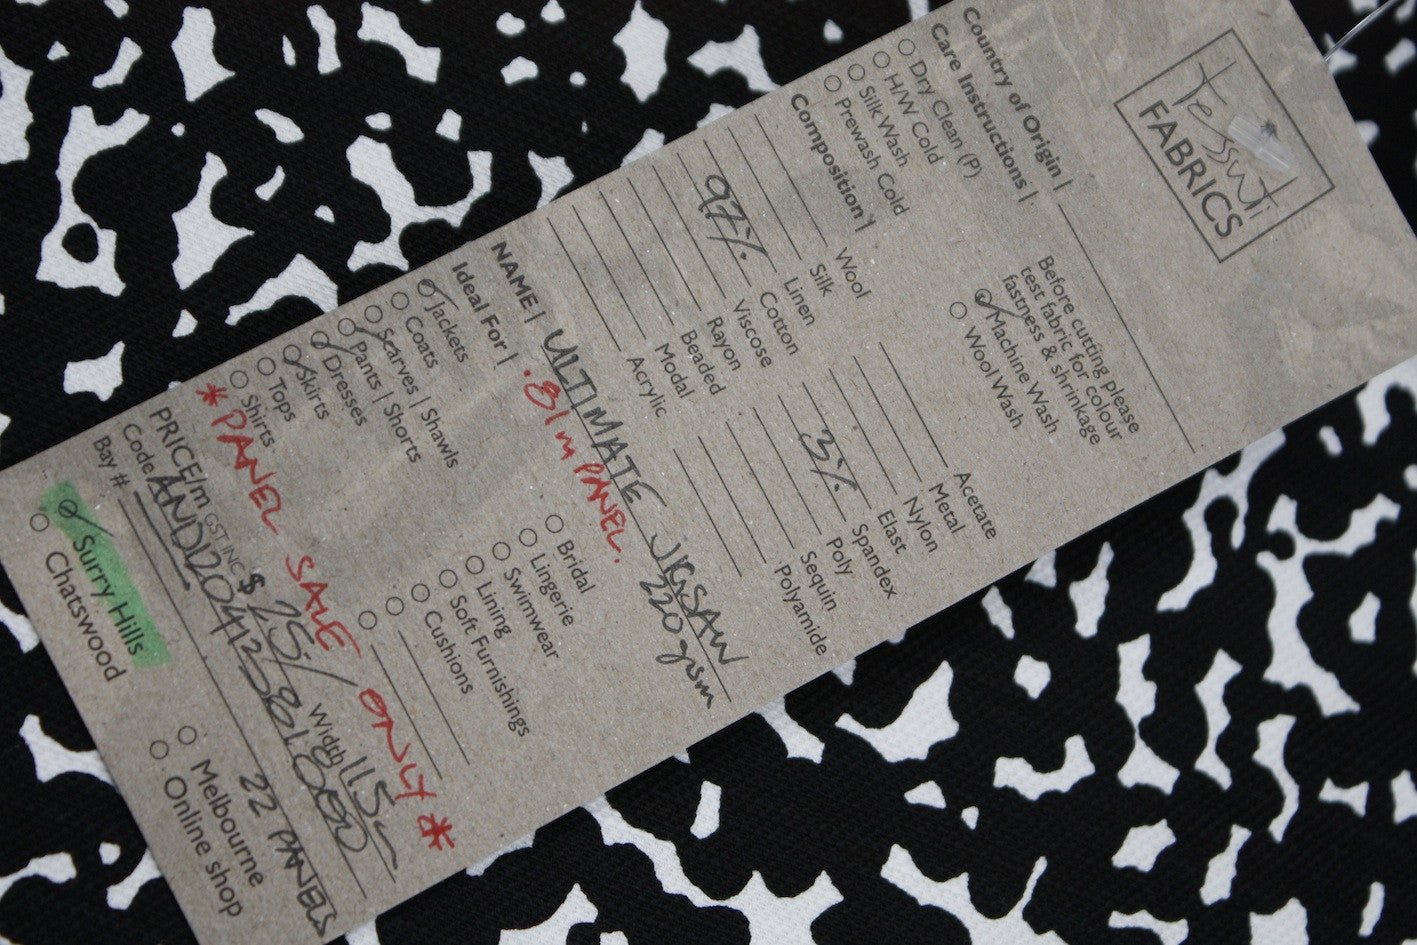 Tessuti
FABRICS
Country of Origin |
Care Instructions |
Dry Clean (P)
H/W Cold
Silk Wash
Prewash Cold
Before cutting please
test fabric for colour
fastness & shrinkage
Machine Wash
Wool Wash
Composition |
Wool
Silk
Linen
97% Cotton
Viscose
Rayon
Beaded
Modal
Acrylic
Acetate
Metal
Nylon
Elast
3% Spandex
Poly
Sequin
Polyamide
NAME | ULTIMATE JIGSAW
.81m PANEL. 220gsm
Ideal For |
Jackets
Coats
Scarves | Shawls
Pants | Shorts
Dresses
Skirts
Tops
Shirts
Bridal
Lingerie
Swimwear
Lining
Soft Furnishings
Cushions
*PANEL SALE ONLY*
PRICE/m GST INC $ 25/ Width 115
Code
Bay # 22 PANELS
Surry Hills
Chatswood
Melbourne
Online shop